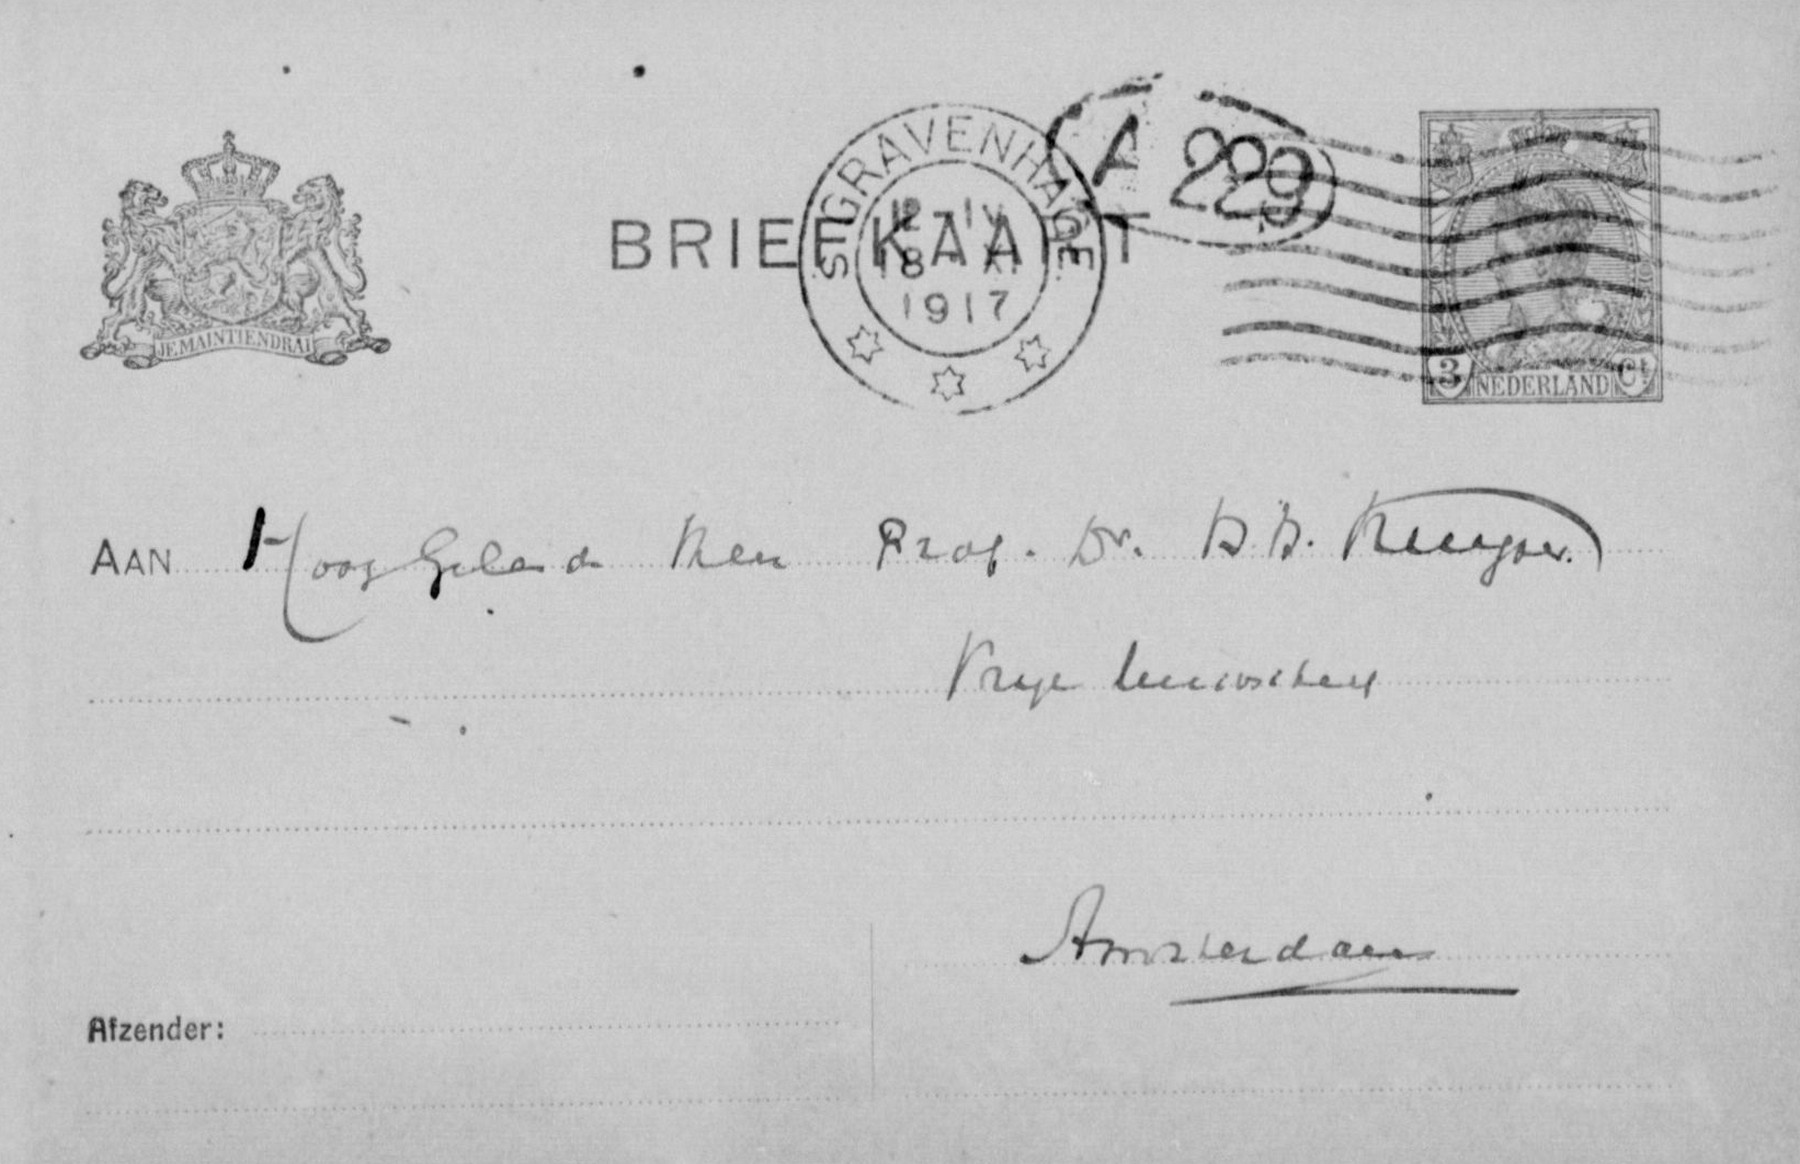 BRIEFKAART
'S GRAVENHAGE
12-1V
18 XI
1917
A 229
JE MAINTIENDRAI
3 NEDERLAND Ct
AAN Hoog Geleerde Heer Prof. Dr. H. H. Kuyper.
Vrije Universiteit
Amsterdam
Afzender: